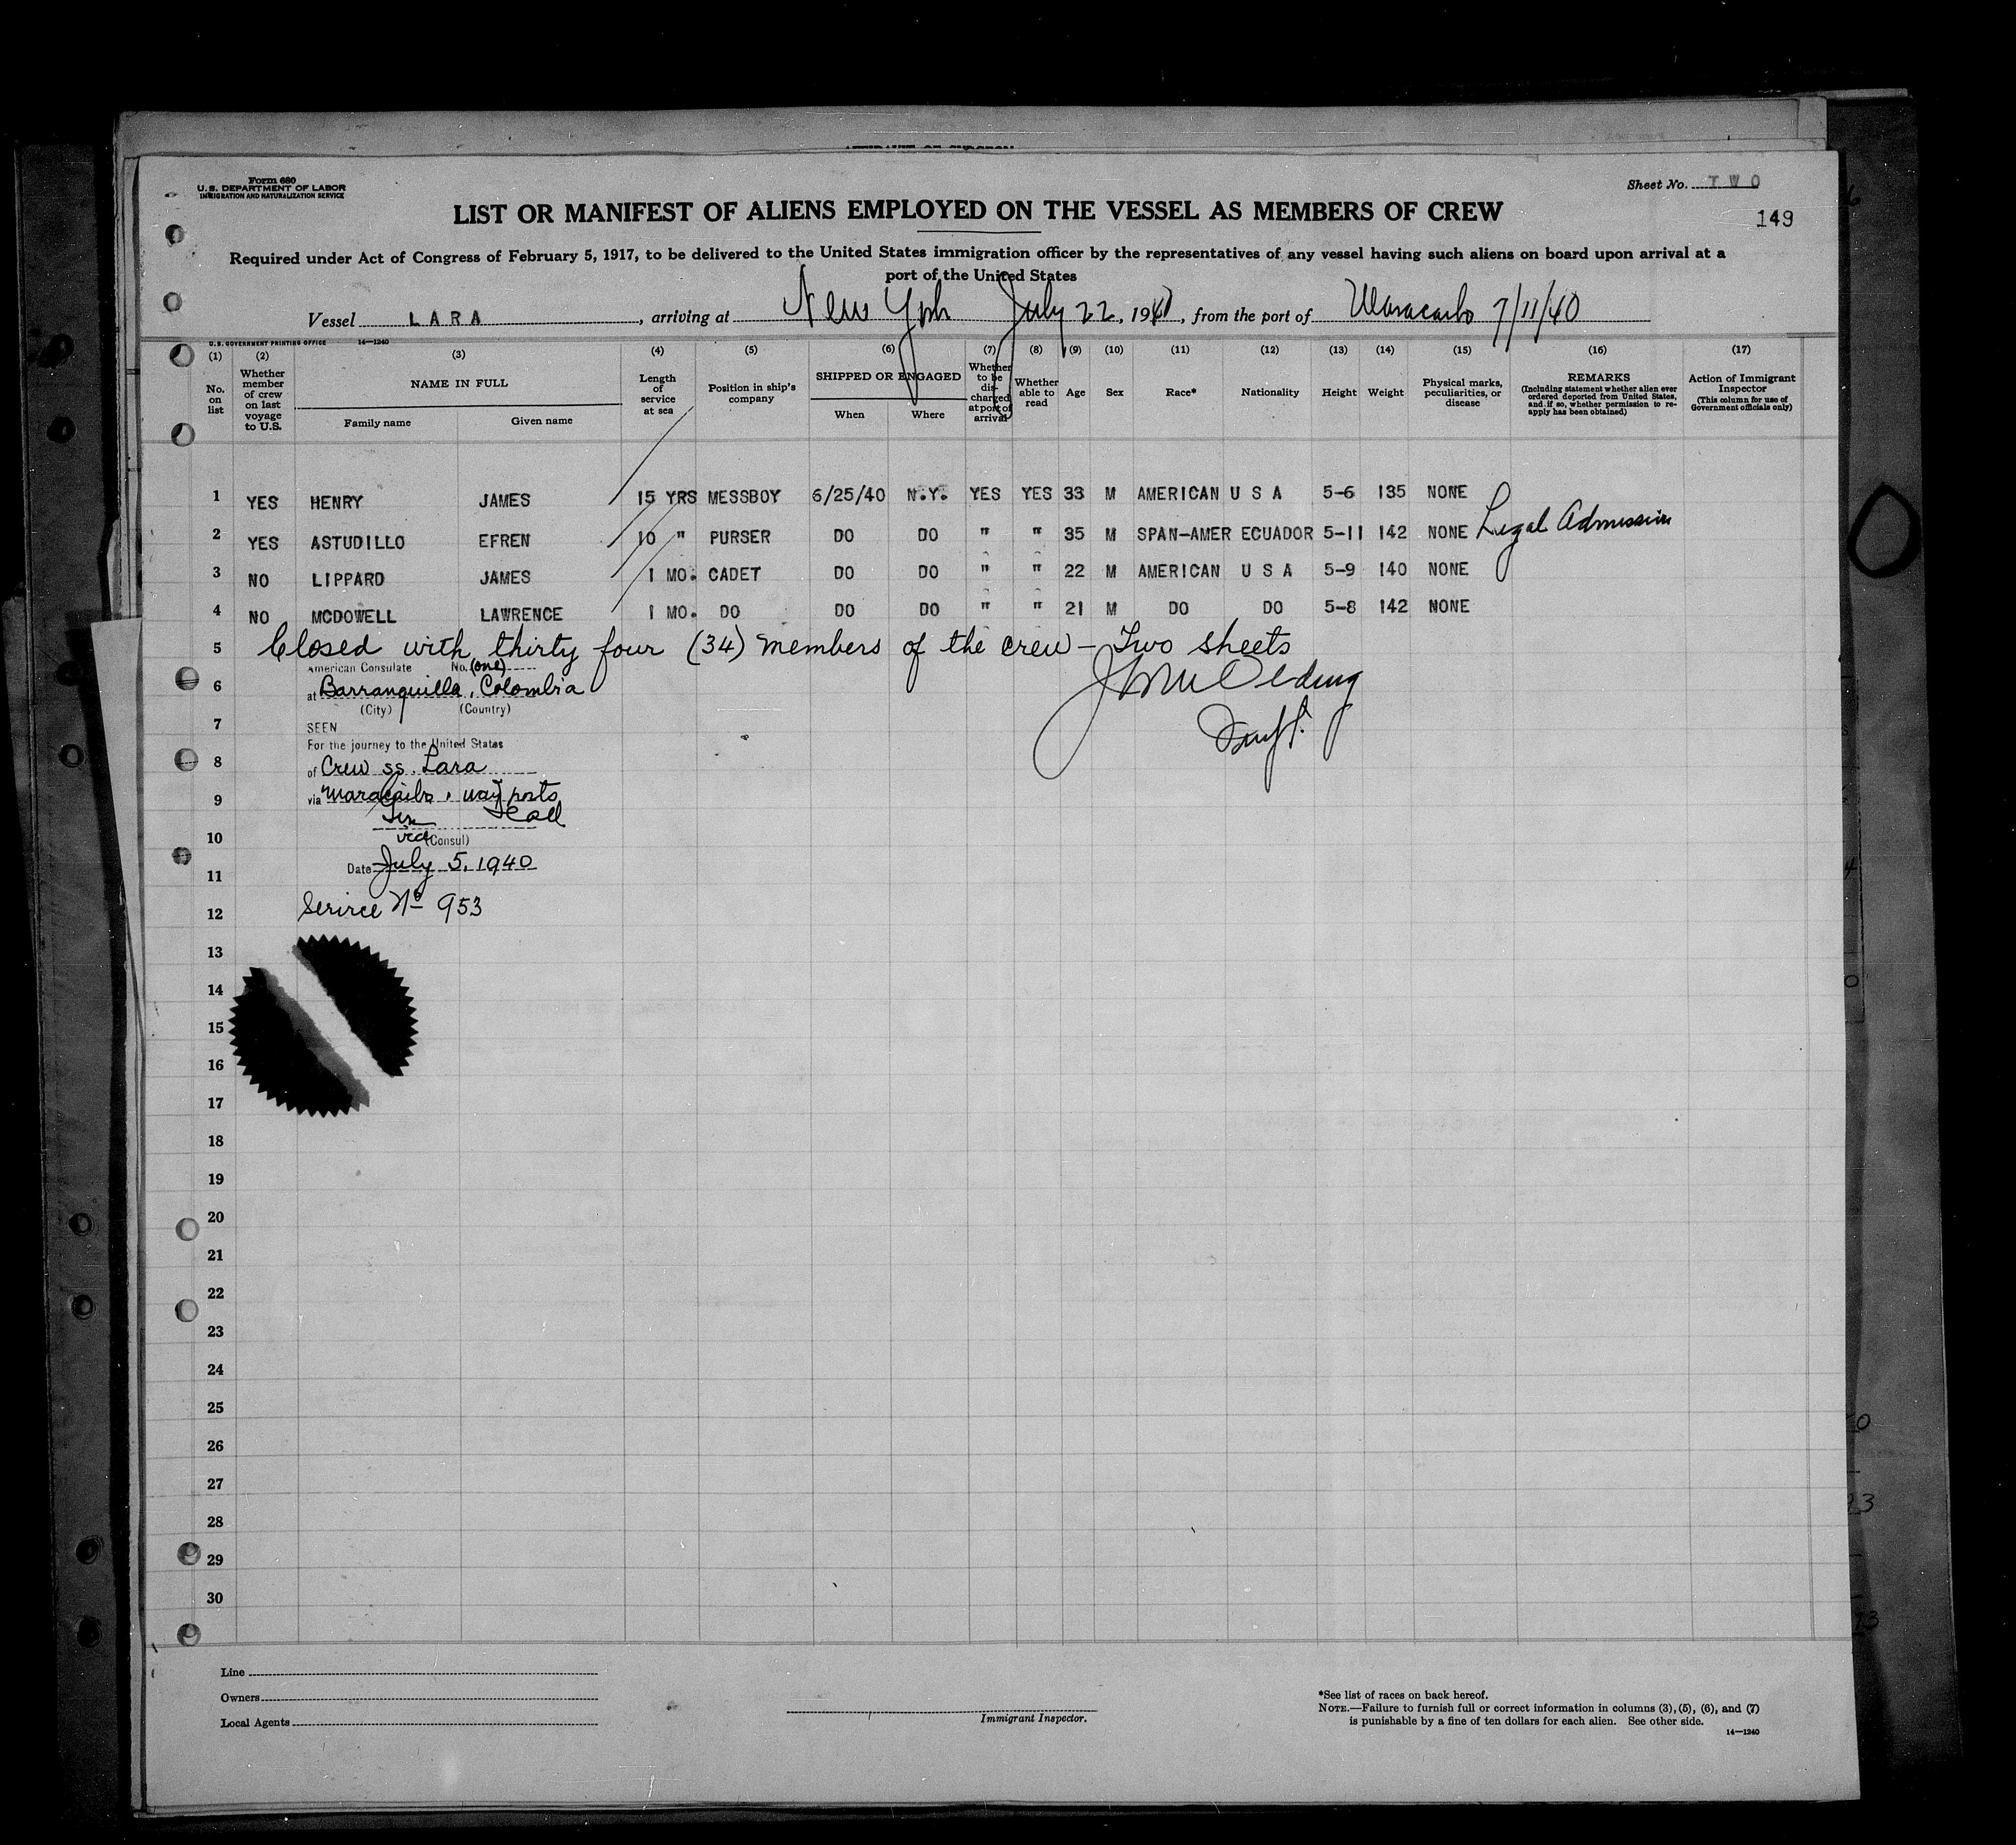 Form 680
U. S. DEPARTMENT OF LABOR
IMMIGRATION AND NATURALIZATION SERVICE
Sheet No. TWO
149
LIST OR MANIFEST OF ALIENS EMPLOYED ON THE VESSEL AS MEMBERS OF CREW
Required under Act of Congress of February 5, 1917, to be delivered to the United States immigration officer by the representatives of any vessel having such aliens on board upon arrival at a
port of the United States
Vessel LARA, arriving at New York July 22, 1940, from the port of Maracaibo 7/11/40
U. S. GOVERNMENT PRINTING OFFICE 14—1240
(1) (2) (3) (4) (5) (6) (7) (8) (9) (10) (11) (12) (13) (14) (15) (16) (17)
No. on list
Whether member of crew on last voyage to U.S.
NAME IN FULL
Family name Given name
Length of service at sea
Position in ship's company
SHIPPED OR ENGAGED
When Where
Whether to be discharged at port of arrival
Whether able to read
Age
Sex
Race*
Nationality
Height
Weight
Physical marks, peculiarities, or disease
REMARKS
(Including statement whether alien ever ordered deported from United States, and if so, whether permission to reapply has been obtained)
Action of Immigrant Inspector
(This column for use of Government officials only)
1 YES HENRY JAMES 15 YRS MESSBOY 6/25/40 N.Y. YES YES 33 M AMERICAN U S A 5-6 135 NONE
2 YES ASTUDILLO EFREN 10 " PURSER DO DO " " 35 M SPAN-AMER ECUADOR 5-11 142 NONE Legal Admission
3 NO LIPPARD JAMES 1 MO. CADET DO DO " " 22 M AMERICAN U S A 5-9 140 NONE
4 NO MCDOWELL LAWRENCE 1 MO. DO DO DO " " 21 M DO DO 5-8 142 NONE
5 Closed with thirty four (34) members of the crew - Two sheets
American Consulate No. (one)
6 at Barranquilla, Colombia
(City) (Country)
7 SEEN
For the journey to the United States
8 of Crew ss. Lara
9 via Maracaibo, way ports
10 (Consul)
11 Date July 5, 1940
12 Service No 953
13
14
15
16
17
18
19
20
21
22
23
24
25
26
27
28
29
30
Line
Owners
Local Agents
Immigrant Inspector.
*See list of races on back hereof.
NOTE.—Failure to furnish full or correct information in columns (3), (5), (6), and (7)
is punishable by a fine of ten dollars for each alien. See other side.
14—1240